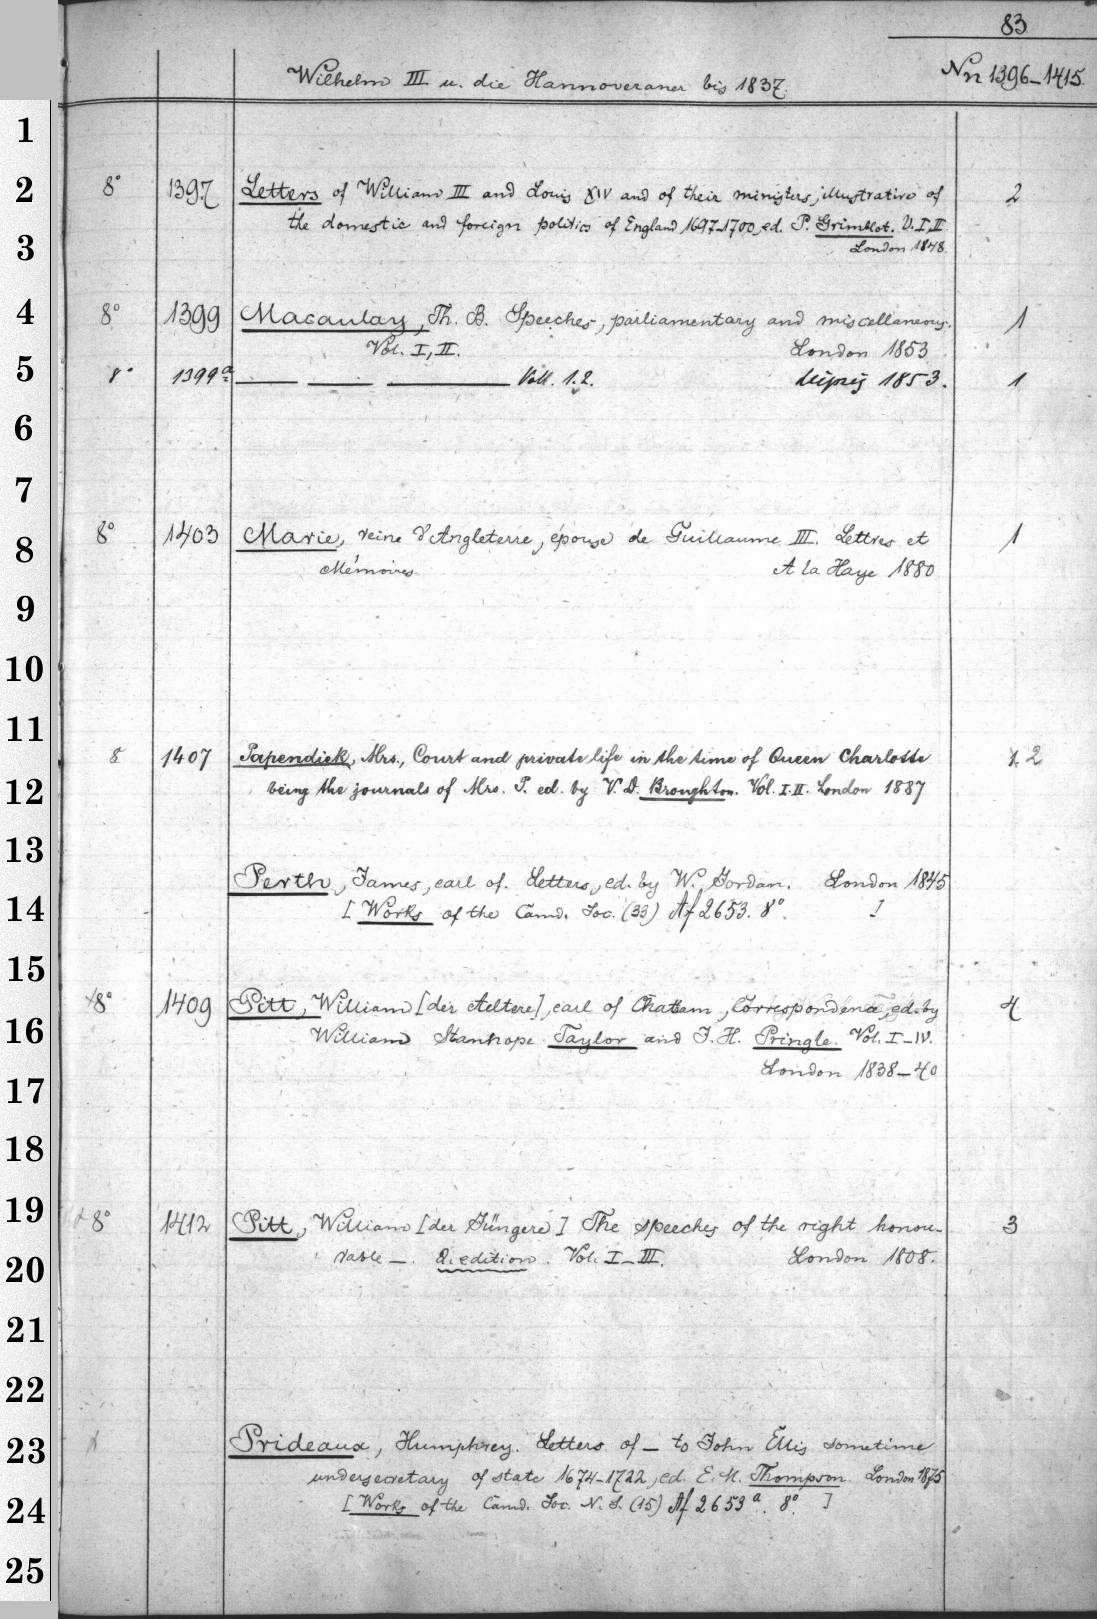 83
Wilhelm III u. die Hannoveraner bis 1837. Nn 1396-1415.
1
2 8° 1397 Letters of William III and Louis XIV and of their ministers, illustrative of 2
the domestic and foreign politics of England 1697-1700, ed. P. Grimblot. V. I, II
3 London 1848.
4 8° 1399 Macaulay, Th. B. Speeches, parliamentary and miscellaneous. 1
Vol. I, II. London 1853
5 8° 1399a — — — Voll. 1.2. Leipzig 1853. 1
6
7
8 8° 1403 Marie, reine d'Angleterre, épouse de Guillaume III. Lettres et 1
Mémoires. A la Haye 1880
9
10
11 8 1407 Papendiek, Mrs., Court and private life in the time of Queen Charlotte 2
12 being the journals of Mrs. P. ed. by V. D. Broughton. Vol. I. II. London 1887
13
Perth, James, earl of. Letters, ed. by W. Jordan. London 1845
14 [Works of the Camd. Soc. (33) Af 2653. 8°. ]
15
8° 1409 Pitt, William [der Aeltere], earl of Chatam, Correspondence, ed. by 4
16 William Stanhope Taylor and J. H. Pringle. Vol. I-IV.
London 1838-40
17
18
19 8° 1412 Pitt, William [der Jüngere] The speeches of the right honou- 3
20 rable —. 2. edition. Vol. I-III. London 1808.
21
22
23 Prideaux, Humphrey. Letters of — to John Ellis sometime
undersecretary of state 1674-1722, ed. E. M. Thompson. London 1875
24 [Works of the Camd. Soc. N. S. (15) Af 2653a. 8°. ]
25